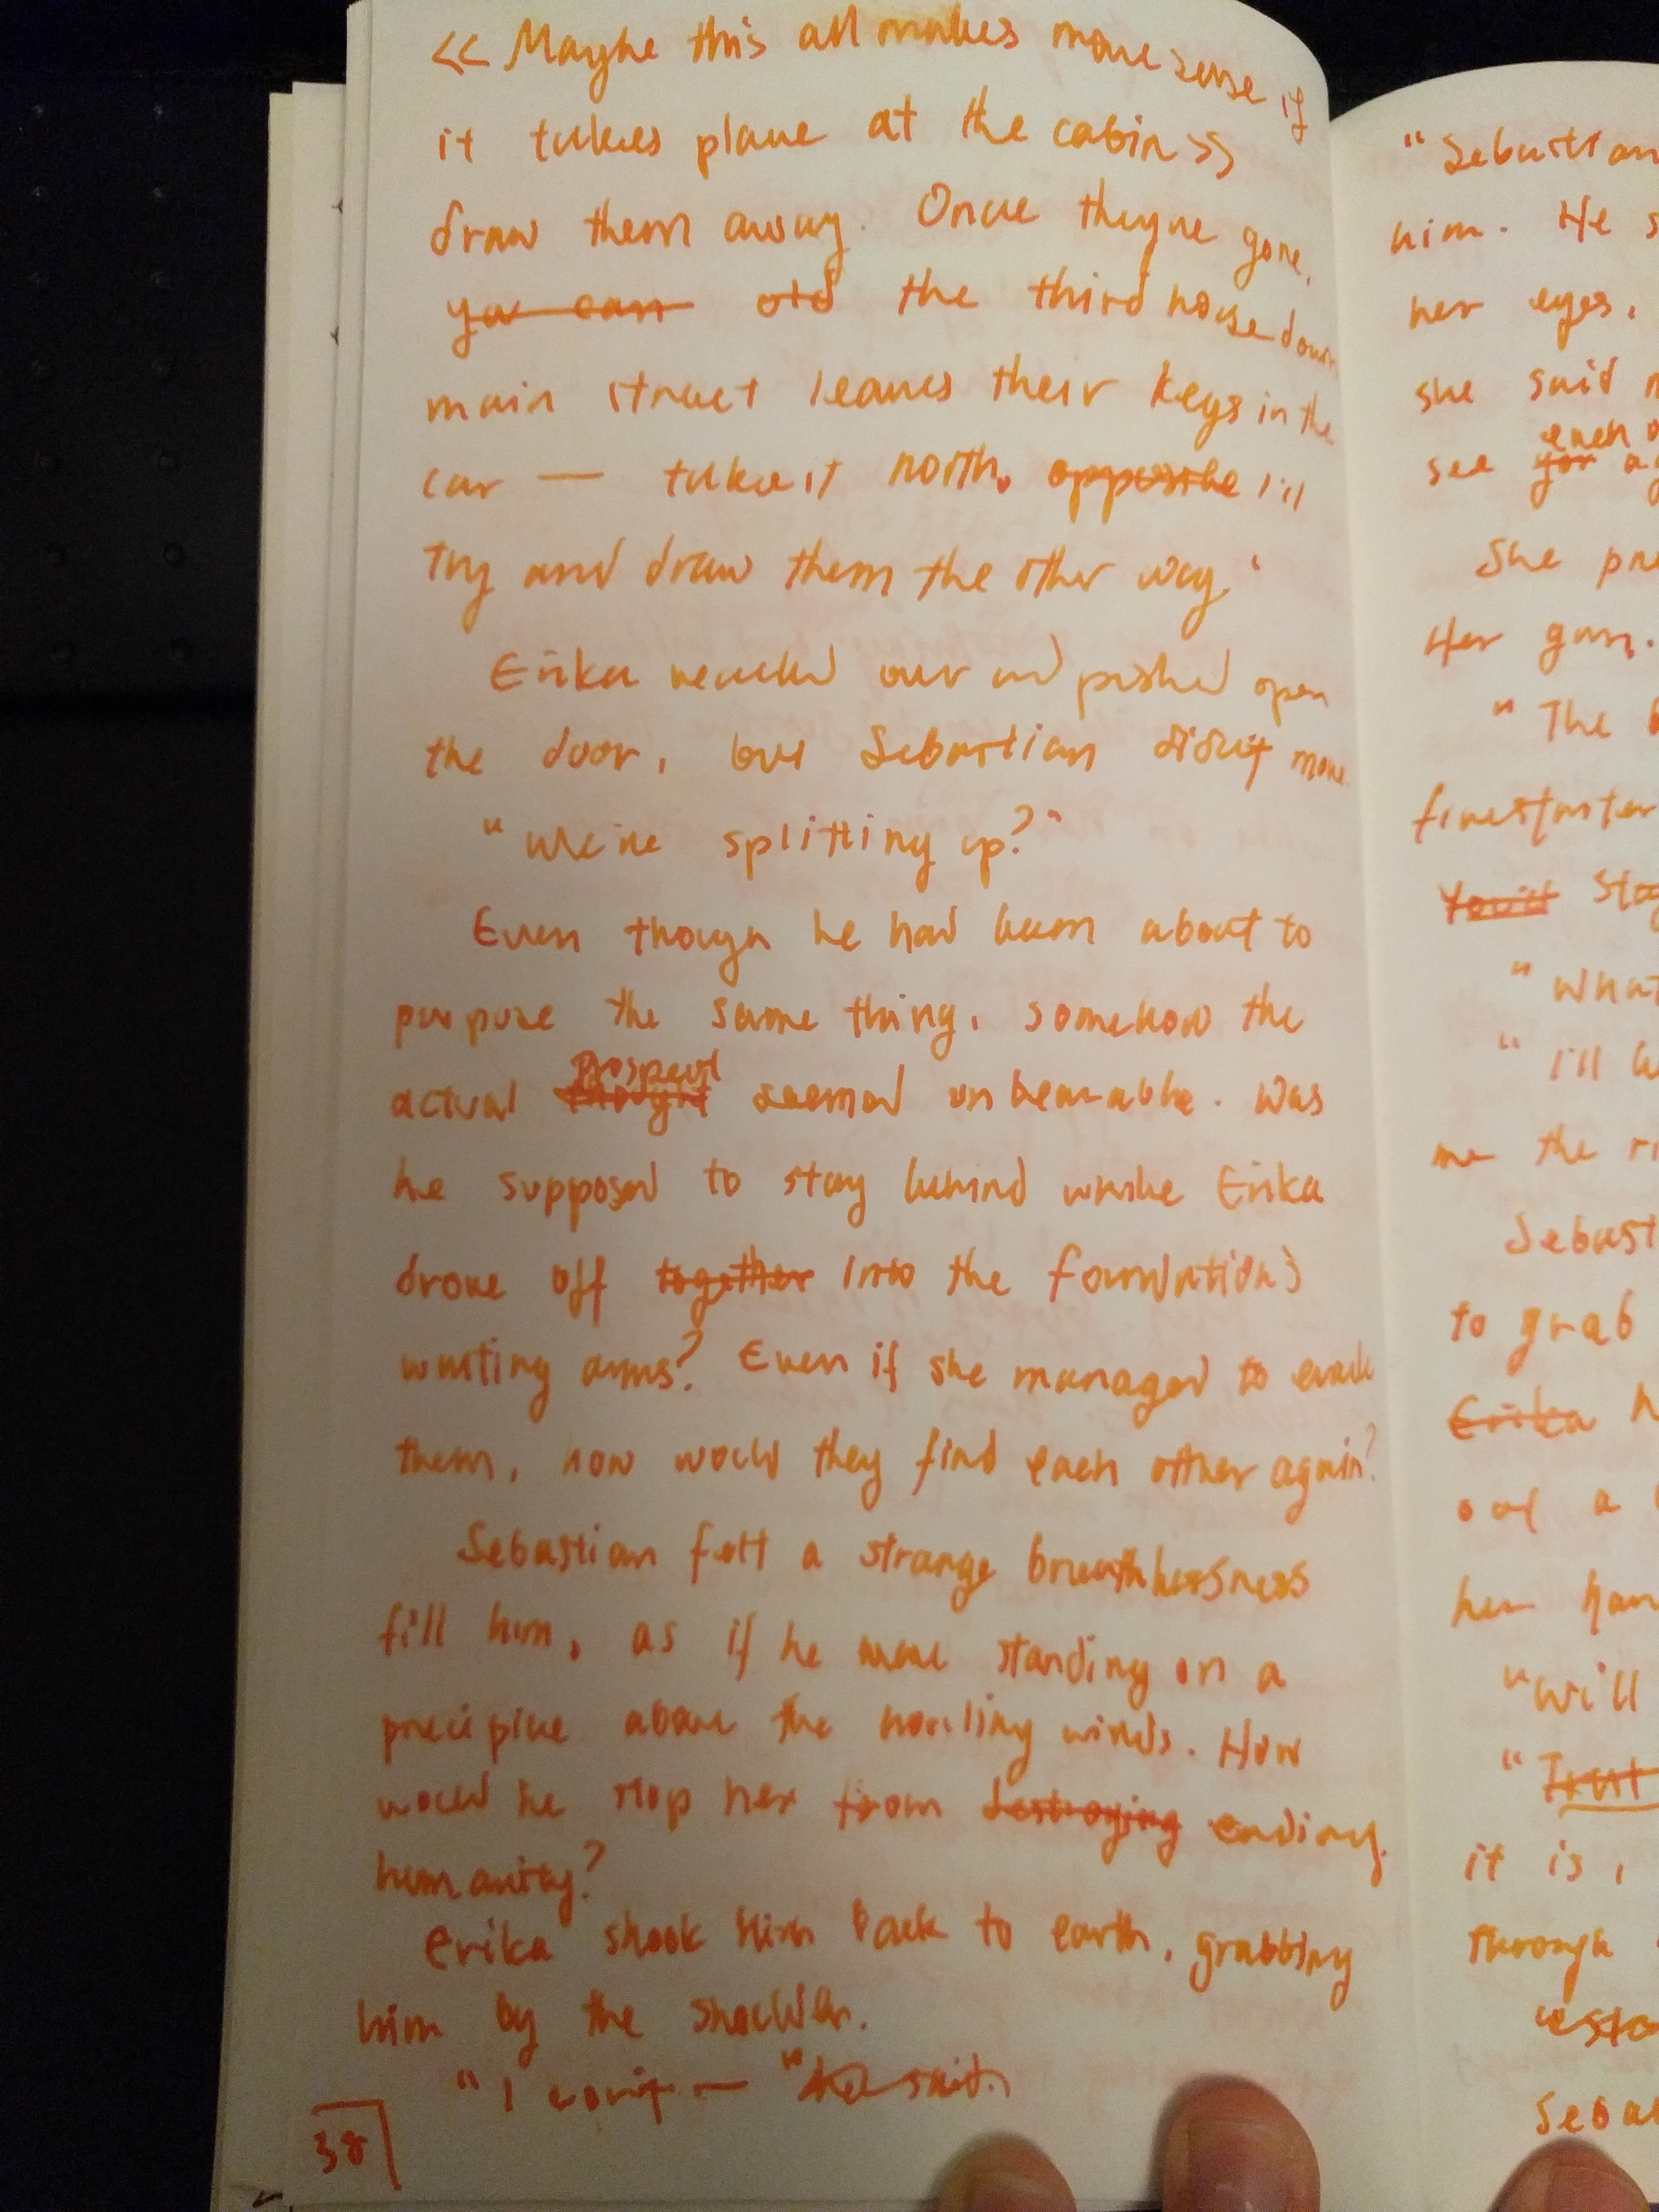 << Maybe this all makes more sense if
it takes place at the cabin >>
draw them away. Once they're gone,
you can old the third house down
main street leaves their keys in the
car — take it north. opposite I'll
try and draw them the other way."
Erika reached over and pushed open
the door, but Sebastian didn't move
"We're splitting up?"
Even though he had been about to
propose the same thing, somehow the
actual thought prospect seemed unbearable. Was
he supposed to stay behind while Erika
drove off together into the foundation's
waiting arms? Even if she managed to evade
them, how would they find each other again?
Sebastian felt a strange breathlessness
fill him, as if he were standing on a
precipice above the howling winds. How
would he stop her from destroying ending
humanity?
Erika shook him back to earth, grabbing
him by the shoulder.
"I can't — " said.
38
"Sebastian
him. He s
her eyes.
she said
each o
see you ag
She pre
Her gun.
"The b
firestarter
You'll Stay
"What
"I'll
me the ri
Sebast
to grab
Erika h
out a
her han
"Will
"Trust
it is,
through
Seba